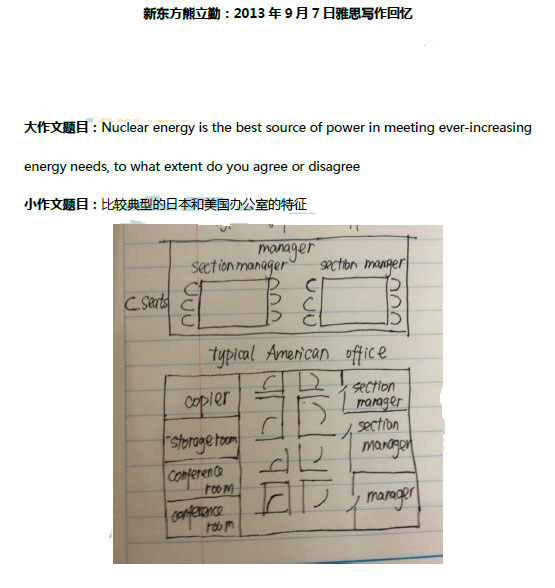 新东方熊立勤：2013 年 9 月 7 日雅思写作回忆
大作文题目：Nuclear energy is the best source of power in meeting ever-increasing
energy needs, to what extent do you agree or disagree
小作文题目：比较典型的日本和美国办公室的特征
manager
section manager section manger
C. Seats
typical American office
copier
section
manager
storage room
section
manager
conference
room
manager
conference
room